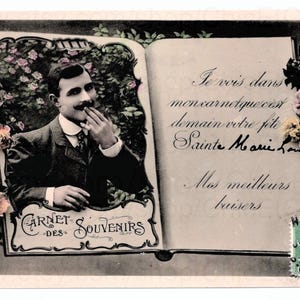 Je vois dans
mon carnet que c'est
demain votre fête
Sainte Marie Lou
Mes meilleurs
baisers
CARNET
-DES- SOUVENIRS